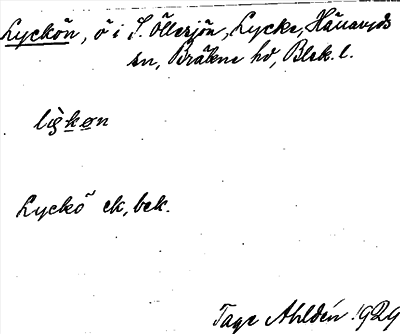 Lyckön, ö i S. Öllesjön, Lycke, Hällaryds
sn, Bräkne hd, Blek. l.
lykøn
Lyckö ek, bek.
Tage Ahldén 1929